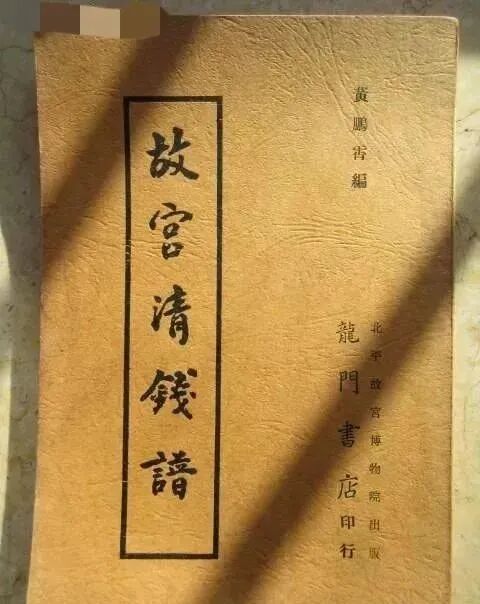 黃鵬霄編
故宮清錢譜
北平故宮博物院出版
龍門書店印行